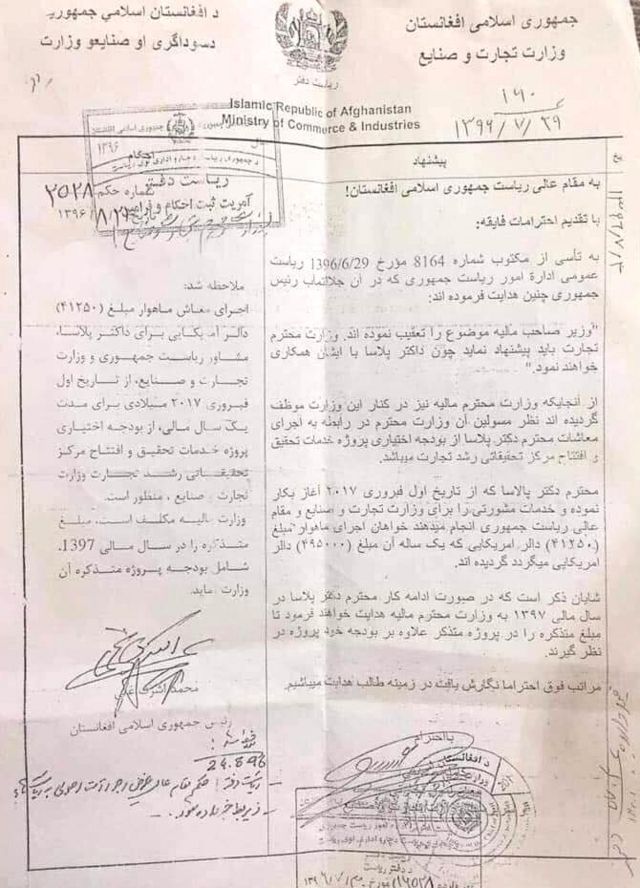 جمهوری اسلامی افغانستان
وزارت تجارت و صنایع
د افغانستان اسلامي جمهوریت
د سوداګرۍ او صنایعو وزارت
ریاست دفتر
Islamic Republic of Afghanistan
Ministry of Commerce & Industries
۱۶۰
۱۳۹۶/۷/۲۹
پیشنهاد
به مقام عالی ریاست جمهوری اسلامی افغانستان!
با تقدیم احترامات فایقه:
به تأسی از مکتوب شماره 8164 مؤرخ 1396/6/29 ریاست
عمومی ادارۀ امور ریاست جمهوری که در آن جلالتماب رئیس
جمهوری چنین هدایت فرموده اند:
"وزیر صاحب مالیه موضوع را تعقیب نموده اند. وزارت محترم
تجارت باید پیشنهاد نماید چون داکتر پلاسا با ایشان همکاری
خواهند نمود."
از آنجایکه وزارت محترم مالیه نیز در کنار این وزارت موظف
گردیده اند نظر مسولین آن وزارت محترم در رابطه به اجرای
معاشات محترم دکتر پلاسا از بودجه اختیاری پروژه خدمات تحقیق
و افتتاح مرکز تحقیقاتی رشد تجارت میباشد.
محترم دکتر پالاسا که از تاریخ اول فبروری ۲۰۱۷ آغاز بکار
نموده و خدمات مشورتی را برای وزارت تجارت و صنایع و مقام
عالی ریاست جمهوری انجام میدهند خواهان اجرای ماهوار مبلغ
(۴۱۲۵۰) دالر امریکایی که یک ساله آن مبلغ (۴۹۵۰۰۰) دالر
امریکایی میگردد گردیده اند.
شایان ذکر است که در صورت ادامه کار محترم دکتر پلاسا در
سال مالی ۱۳۹۷ به وزارت محترم مالیه هدایت خواهند فرمود تا
مبلغ متذکره را در پروژه متذکر علاوه بر بودجه خود پروژه در
نظر گیرند.
مراتب فوق احتراما نگارش یافت در زمینه طالب هدایت میباشیم.
با احترام
جمهوری اسلامی افغانستان
۱۳۹۶
احکام
ریاست دفتر
آمریت ثبت احکام و فرامین
شماره حکم ۲۵۲۸
ملاحظه شد:
اجرای معاش ماهوار مبلغ (۴۱۲۵۰)
دالر امریکایی برای داکتر پلاسا،
مشاور ریاست جمهوری و وزارت
تجارت و صنایع، از تاریخ اول
فبروری ۲۰۱۷ میلادی برای مدت
یک سال مالی، از بودجه اختیاری
پروژه خدمات تحقیق و افتتاح مرکز
تحقیقاتی رشد تجارت وزارت
تجارت و صنایع، منظور است.
وزارت مالیه مکلف است، مبلغ
متذکره را در سال مالی 1397،
شامل بودجه پروژه متذکره آن
وزارت نماید.
محمد اشرف غنی
رئیس جمهوری اسلامی افغانستان
24.8.96
د افغانستان